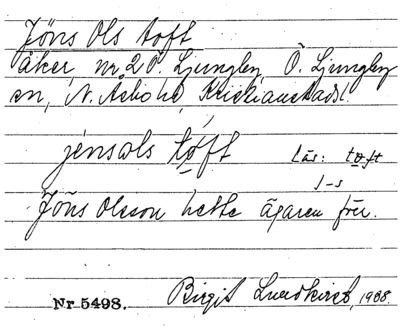 Jöns Ols toft
åker, nr 2 Ö. Ljungby, Ö. Ljungby
sn, N. Åsbo hd, Kristianstads l.
jénsols tóft Läs: toft
1-s
Jöns Olsson hette ägaren förr.
Birgit Lundkvist, 1938.
Nr 5498.